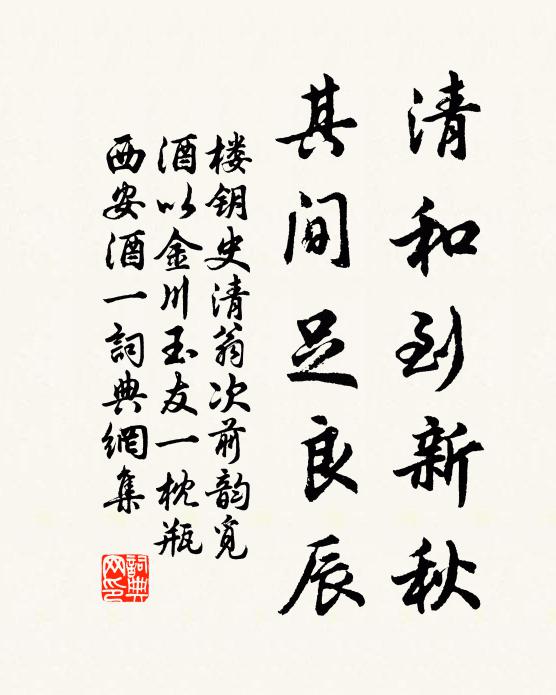 清和到新秋
其间足良辰
楼钥史清翁次前韵觅
酒以金川玉友一枕瓶
西安酒一詞典網集
詞典
网印